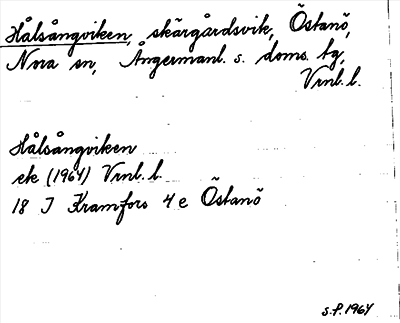 Hålsångviken, skärgårdsvik, Östanö,
Nora sn, Ångermanl. s. doms. tg,
Vrnl. l.
Hålsångviken
ek (1964) Vrnl. l.
18 J Kramfors 4 e Östanö
S.P. 1964